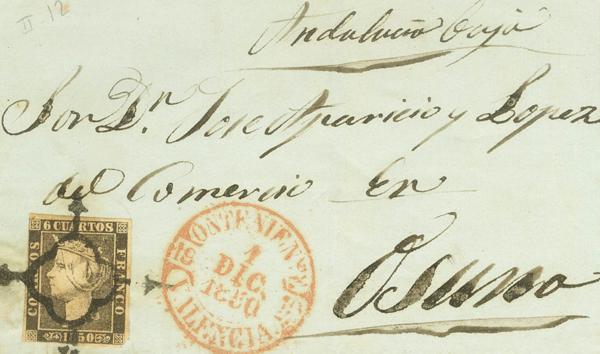 II-12
Andalucia baja
Sor. Dn. Jose Aparicio y Lopez
del Comercio En
Osuna
6 CUARTOS
CORREOS
FRANCO
1850
ONTENIENTE
1
DIC.
1850
VALENCIA